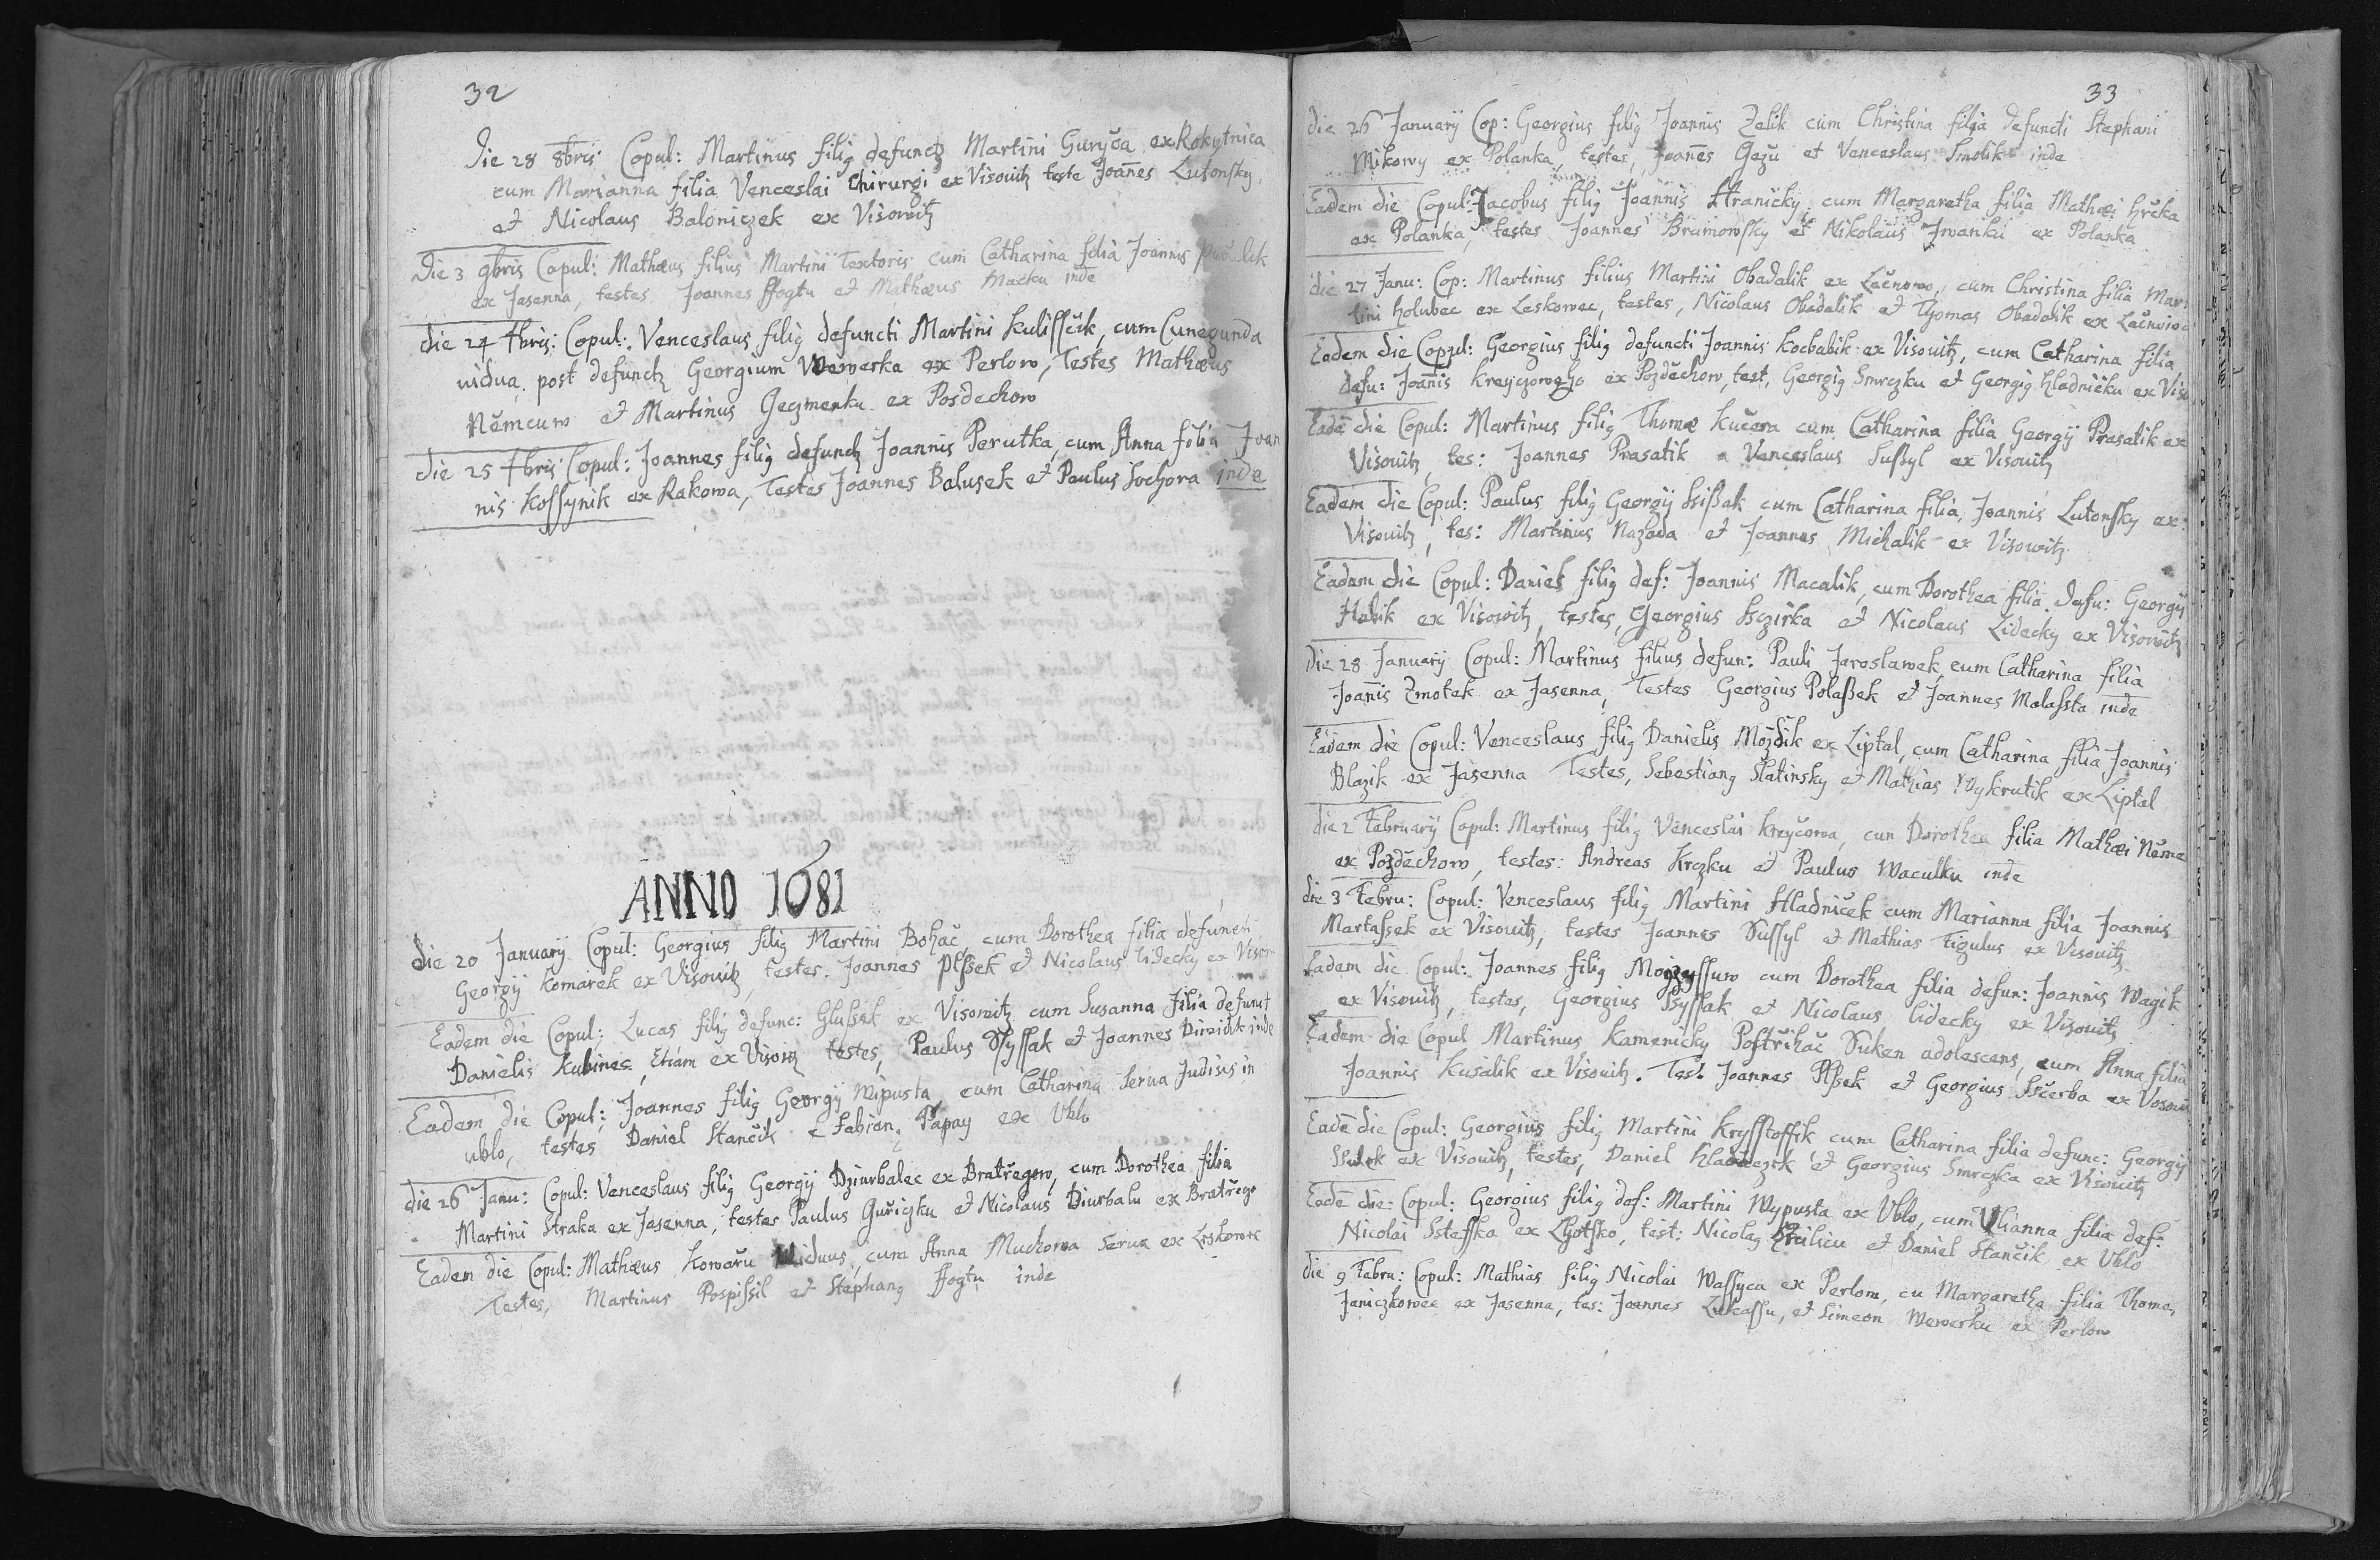 32
Die 28 8bris Copul: Martinus filiꝯ defunctꝫ Martini Guryča ex Rokytnica
cum Marianna filia Venceslai Chirurgi ex Visouitz teste Joañes Lutonsky
et Nicolaus Baloniczek ex Visowitz
Die 3 9bris Copul: Mathæus filius Martini Textoris cum Catharina filia Joannis
ex Jasenna, testes Joannes ffogtu et Mathæus Macku inde
die 24 9bris: Copul: Venceslaus filiꝯ defuncti Martini Kulissčik, cum Cunegunda
uidua post defunctꝫ Georgium Wewerka ex Perlow, Testes Mathæus
Němcuw et Martinus Geczmenku ex Posdechow
die 25 9bris Copul: Joannes filiꝯ defunctꝫ Joannis Perutka, cum Anna filia Joan
nis Kossynik ex Rakowa, Testes Joannes Balusek et Paulus Sochora inde
ANNO 1681
die 20 January Copul: Georgius filiꝯ Martini Bohač, cum Dorothea filia defuncti
Georgÿ Komarek ex Visouitz, testes. Joannes Plssek et Nicolaus Lidecky ex Visow
Eadem die Copul: Lucas filiꝯ defunc: Glussek ex Visowitz cum Susanna filia defunct
Danielis Kubinec, Etiam ex Visoẅitz testes, Paulus Syssak et Joannes inde
Eadem die Copul: Joannes filiꝯ Georgÿ Wipusta, cum Catharina serua Judisis in
ublo, testes Daniel Stančik e Fabian, Papay ex Ublo
die 26 Janu: Copul: Venceslaus filiꝯ Georgÿ Dziurbalec ex Bratřegow, cum Dorothea filia
Martini Straka ex Jasenna, testes Paulus Guřiczku et Nicolaus Diurbalu ex Bratřego
Eadem die Copul: Mathæus Kowařu Widuus, cum Anna Muchowa serua ex Leskowec
Testes, Martinus Pospissil et Stephanꝯ ffogtu inde
33
die 26 January Cop: Georgius filiꝯ Joannis Zelik cum Christina filia defuncti Stephani
Mikowy ex Polanka, testes, Joañes Gežu et Venceslaus Smolik inde
Eadem die Copul: Jacobus filiꝯ Joannis Hranicky cum Margaretha filia Mathæi Hrčka
ex Polanka, testes Joannes Brumowsky et Nikolaus Jwanku ex Polanka
die 27 Janu: Cop: Martinus filius Martini Obadalik ex Lačnow, cum Christina filia Mar:
tini Holubec ex Leskowec, testes, Nicolaus Obadalik et Thomas Obadalik ex Lačnow
Eadem die Copul: Georgius filiꝯ defuncti Joannis Kocbabik ex Visouitz, cum Catharina filia
defu: Joañis Kreyczoweho ex Pozděchow, test, Georgiꝯ Smrczku et Georgiꝯ Hladničku ex Viso
Eadē die Copul: Martinus filiꝯ Thomæ Kučera cum Catharina filia Georgÿ Prasatik ex
Visouitz, tes: Joannes Prasatik a Venceslaus Sussyl ex Visouitz
Eadem die Copul: Paulus filiꝯ Georgÿ Ssißak cum Catharina filia, Joannis Lutonsky ex:
Visouitz, tes: Martinus Nazada et Joannes Michalik ex Visowitz
Eadem die Copul: Daniel filiꝯ def: Joannis Macalik, cum Dorothea filia defu: Georgÿ
Habik ex Visowitz, testes, Georgius Ssczirka et Nicolaus Lidecky ex Visowitz
Die 28 January Copul: Martinus filius defun: Pauli Jaroslawek cum Catharina filia
Joañis Zmotek ex Jasenna, Testes Georgius Polaßek et Joannes Malassta inde
Eadem die Copul: Venceslaus filiꝯ Danielis Moždik ex Liptal, cum Catharina filia Joannis
Blazik ex Jasenna Testes, Sebestianꝯ Slatinsky et Mathias Wykrutik ex Liptal
die 2 February Copul: Martinus filiꝯ Venceslai Kreyčowa, cum Dorothea filia Mathæi Něme
ex Pozděchow, testes: Andreas Krczku et Paulus Waculku inde
die 3 Febru: Copul: Venceslaus filiꝯ Martini Hladniček cum Marianna filia Joannis
Martassek ex Visouitz, testes Joannes Sussyl et Mathias Figulus ex Visouitz
Eadem die Copul: Joannes filiꝯ Moyzyssuw cum Dorothea filia defun: Joannis Wagik
ex Visouitz, testes, Georgius Ssyssak et Nicolaus lidecky ex Visouitz
Eadem die Copul Martinus Kamenicky Postřihač Suken adolescens, cum Anna filia
Joannis Kusalik ex Visouitz. Test. Joannes Plssek et Georgius Sščerba ex Vosoui
Eadē die Copul: Georgius filiꝯ Martini Krysstoffik, cum Catharina filia defunc: Georgÿ
ex Visouitz, testes, Daniel Hladniczek et Georgius Smrczka ex Visouitz
Eadē die Copul: Georgius filiꝯ def: Martini Wypusta ex Ublo, cum Ulianna filia def:
Nicolai Ssteffka ex Lhotsko, test: Nicolaꝯ et Daniel Stančik ex Ublo
die 9 Febru: Copul: Mathias filiꝯ Nicolai Wassyca ex Perlow, cu Margaretha filia Thomæ
Janiczkowec ex Jasenna, tes: Joannes Lukassu, et Simeon Wewerku ex Perlow